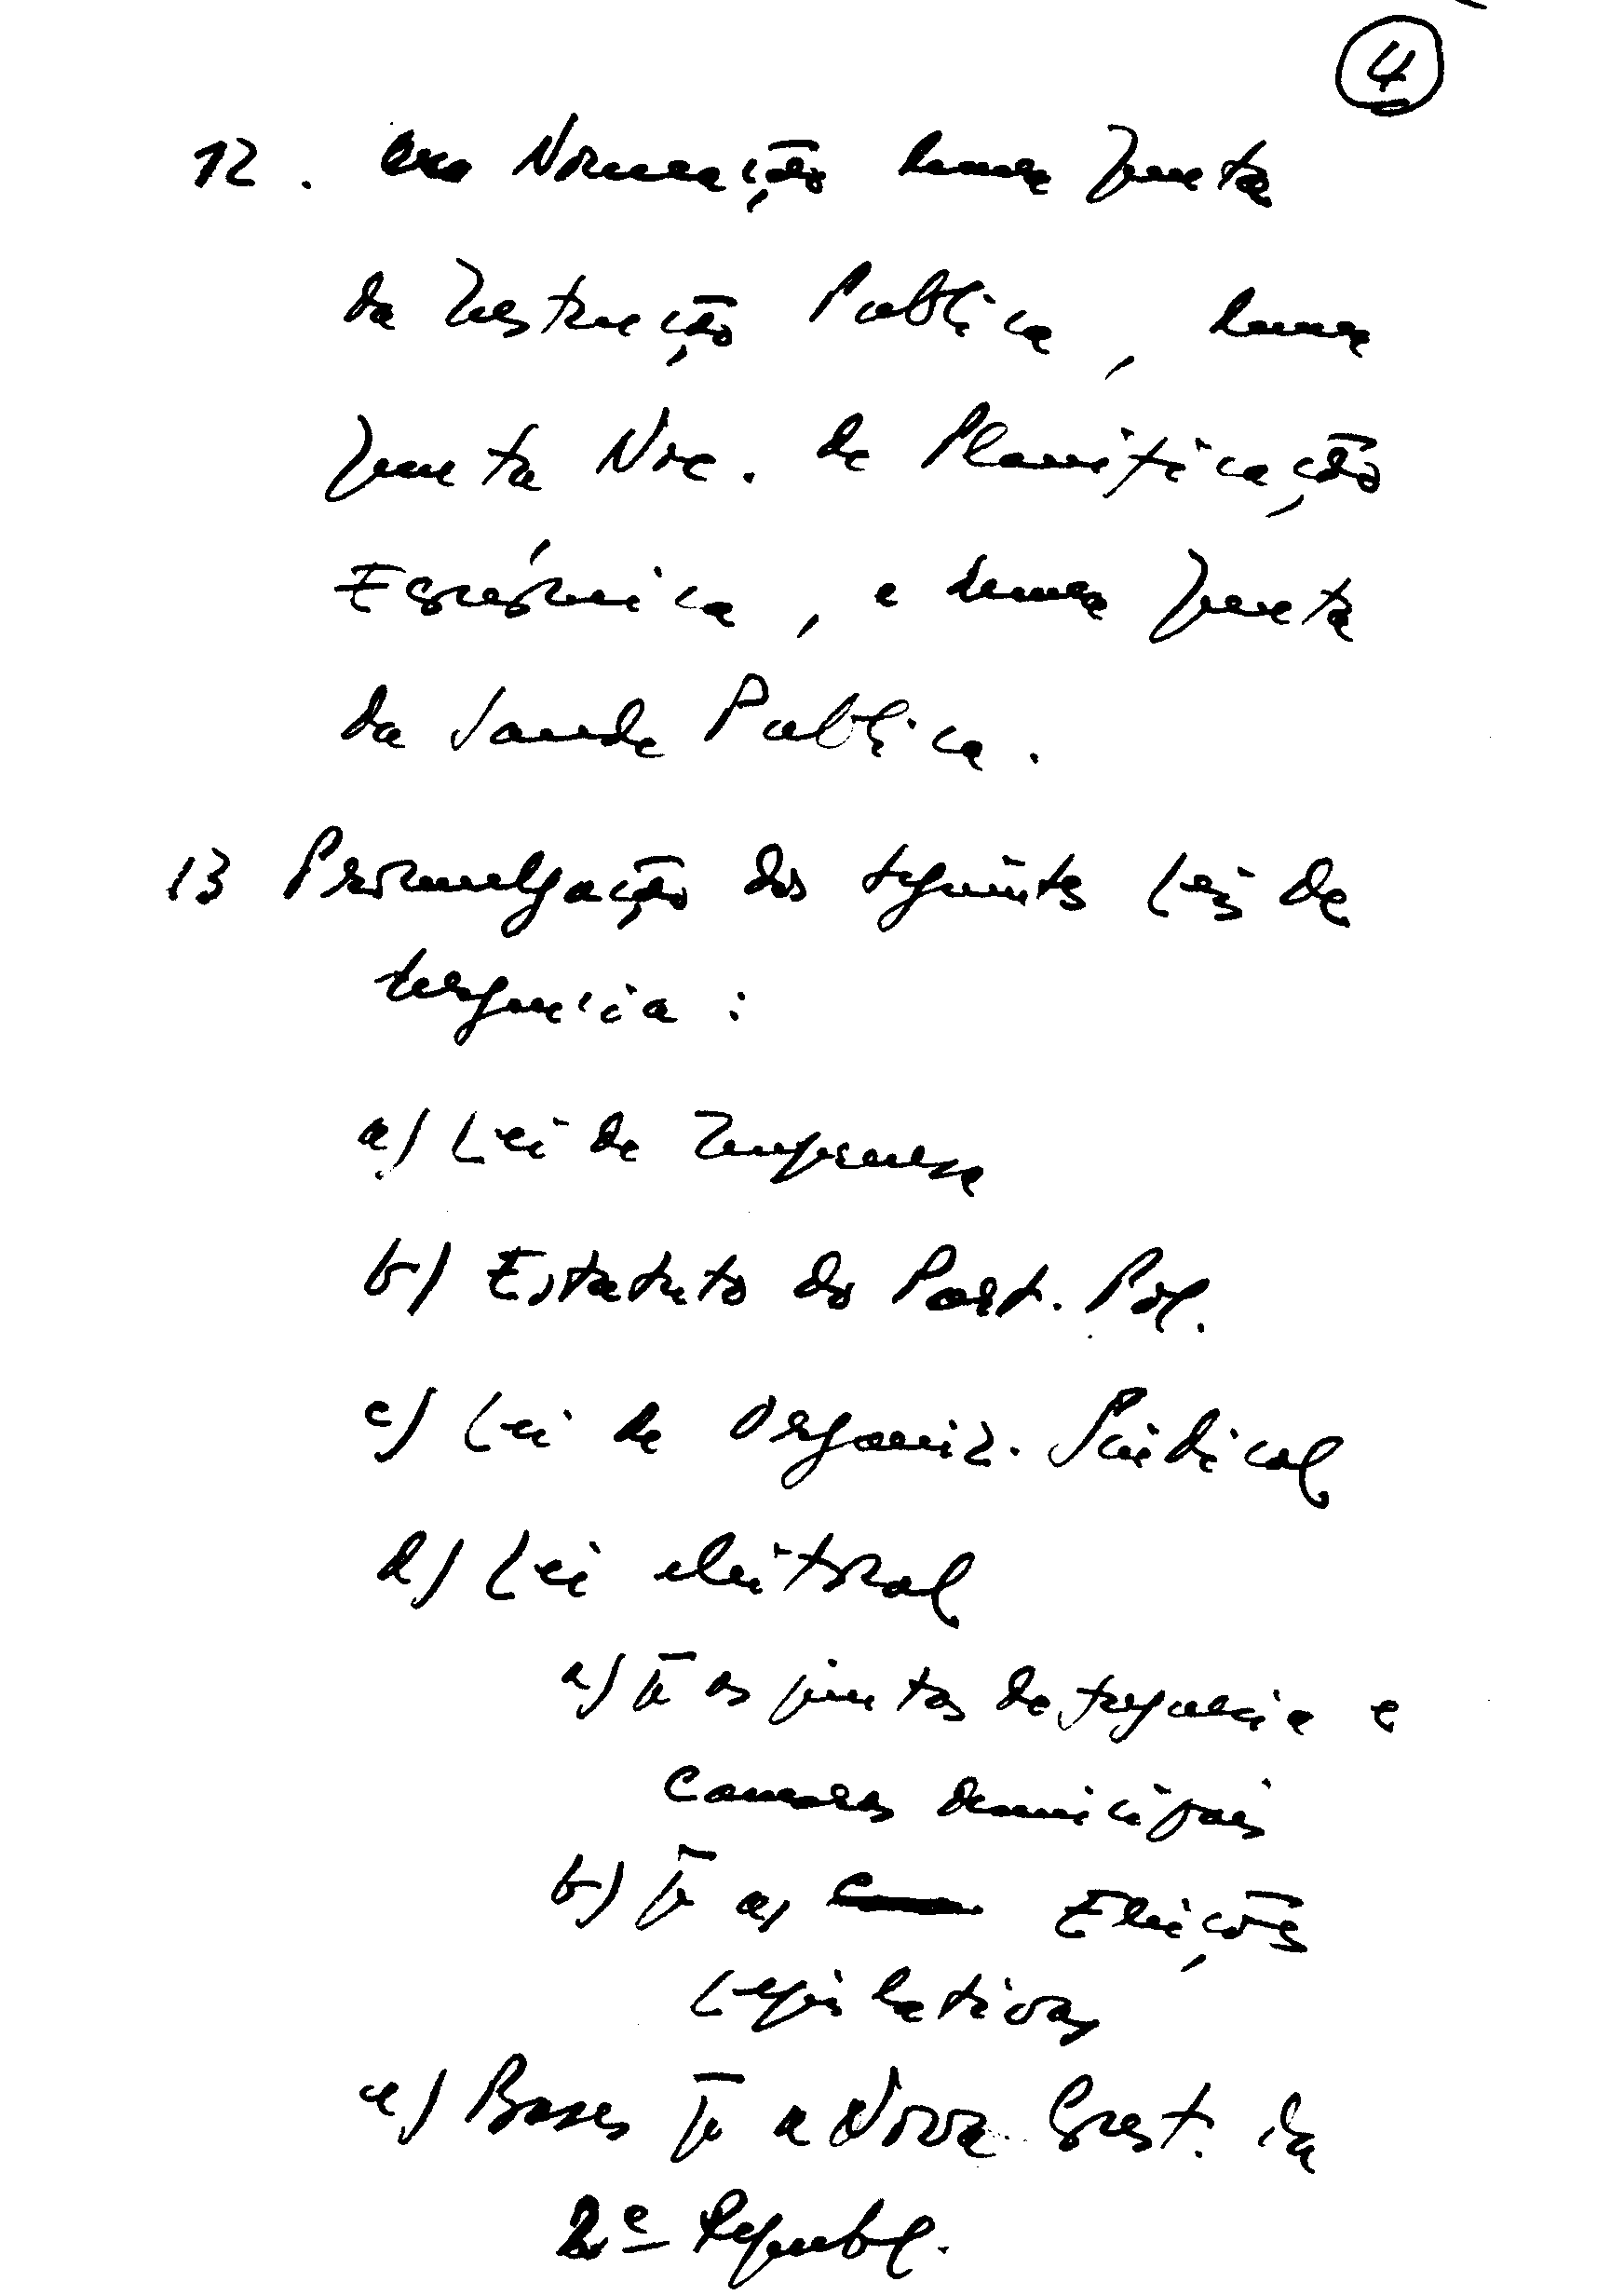 4
12. Nomeação duma Junta
da Instrução Publica, duma
Junta Nac. de Planificação
Económica, e duma Junta
da Saude Publica.
13 Promulgação das seguintes Leis de
urgencia:
a) Lei de Imprensa
b) Estatuto do Part. Pol.
c) Lei de Organiz. Sindical
d) Lei eleitoral
a) p̄ as juntas de freguesia e
Camaras municipais
b) p̄ as Eleições
Legislativas
e) Bases p̄ a Nova Const. da
2ª Republ.